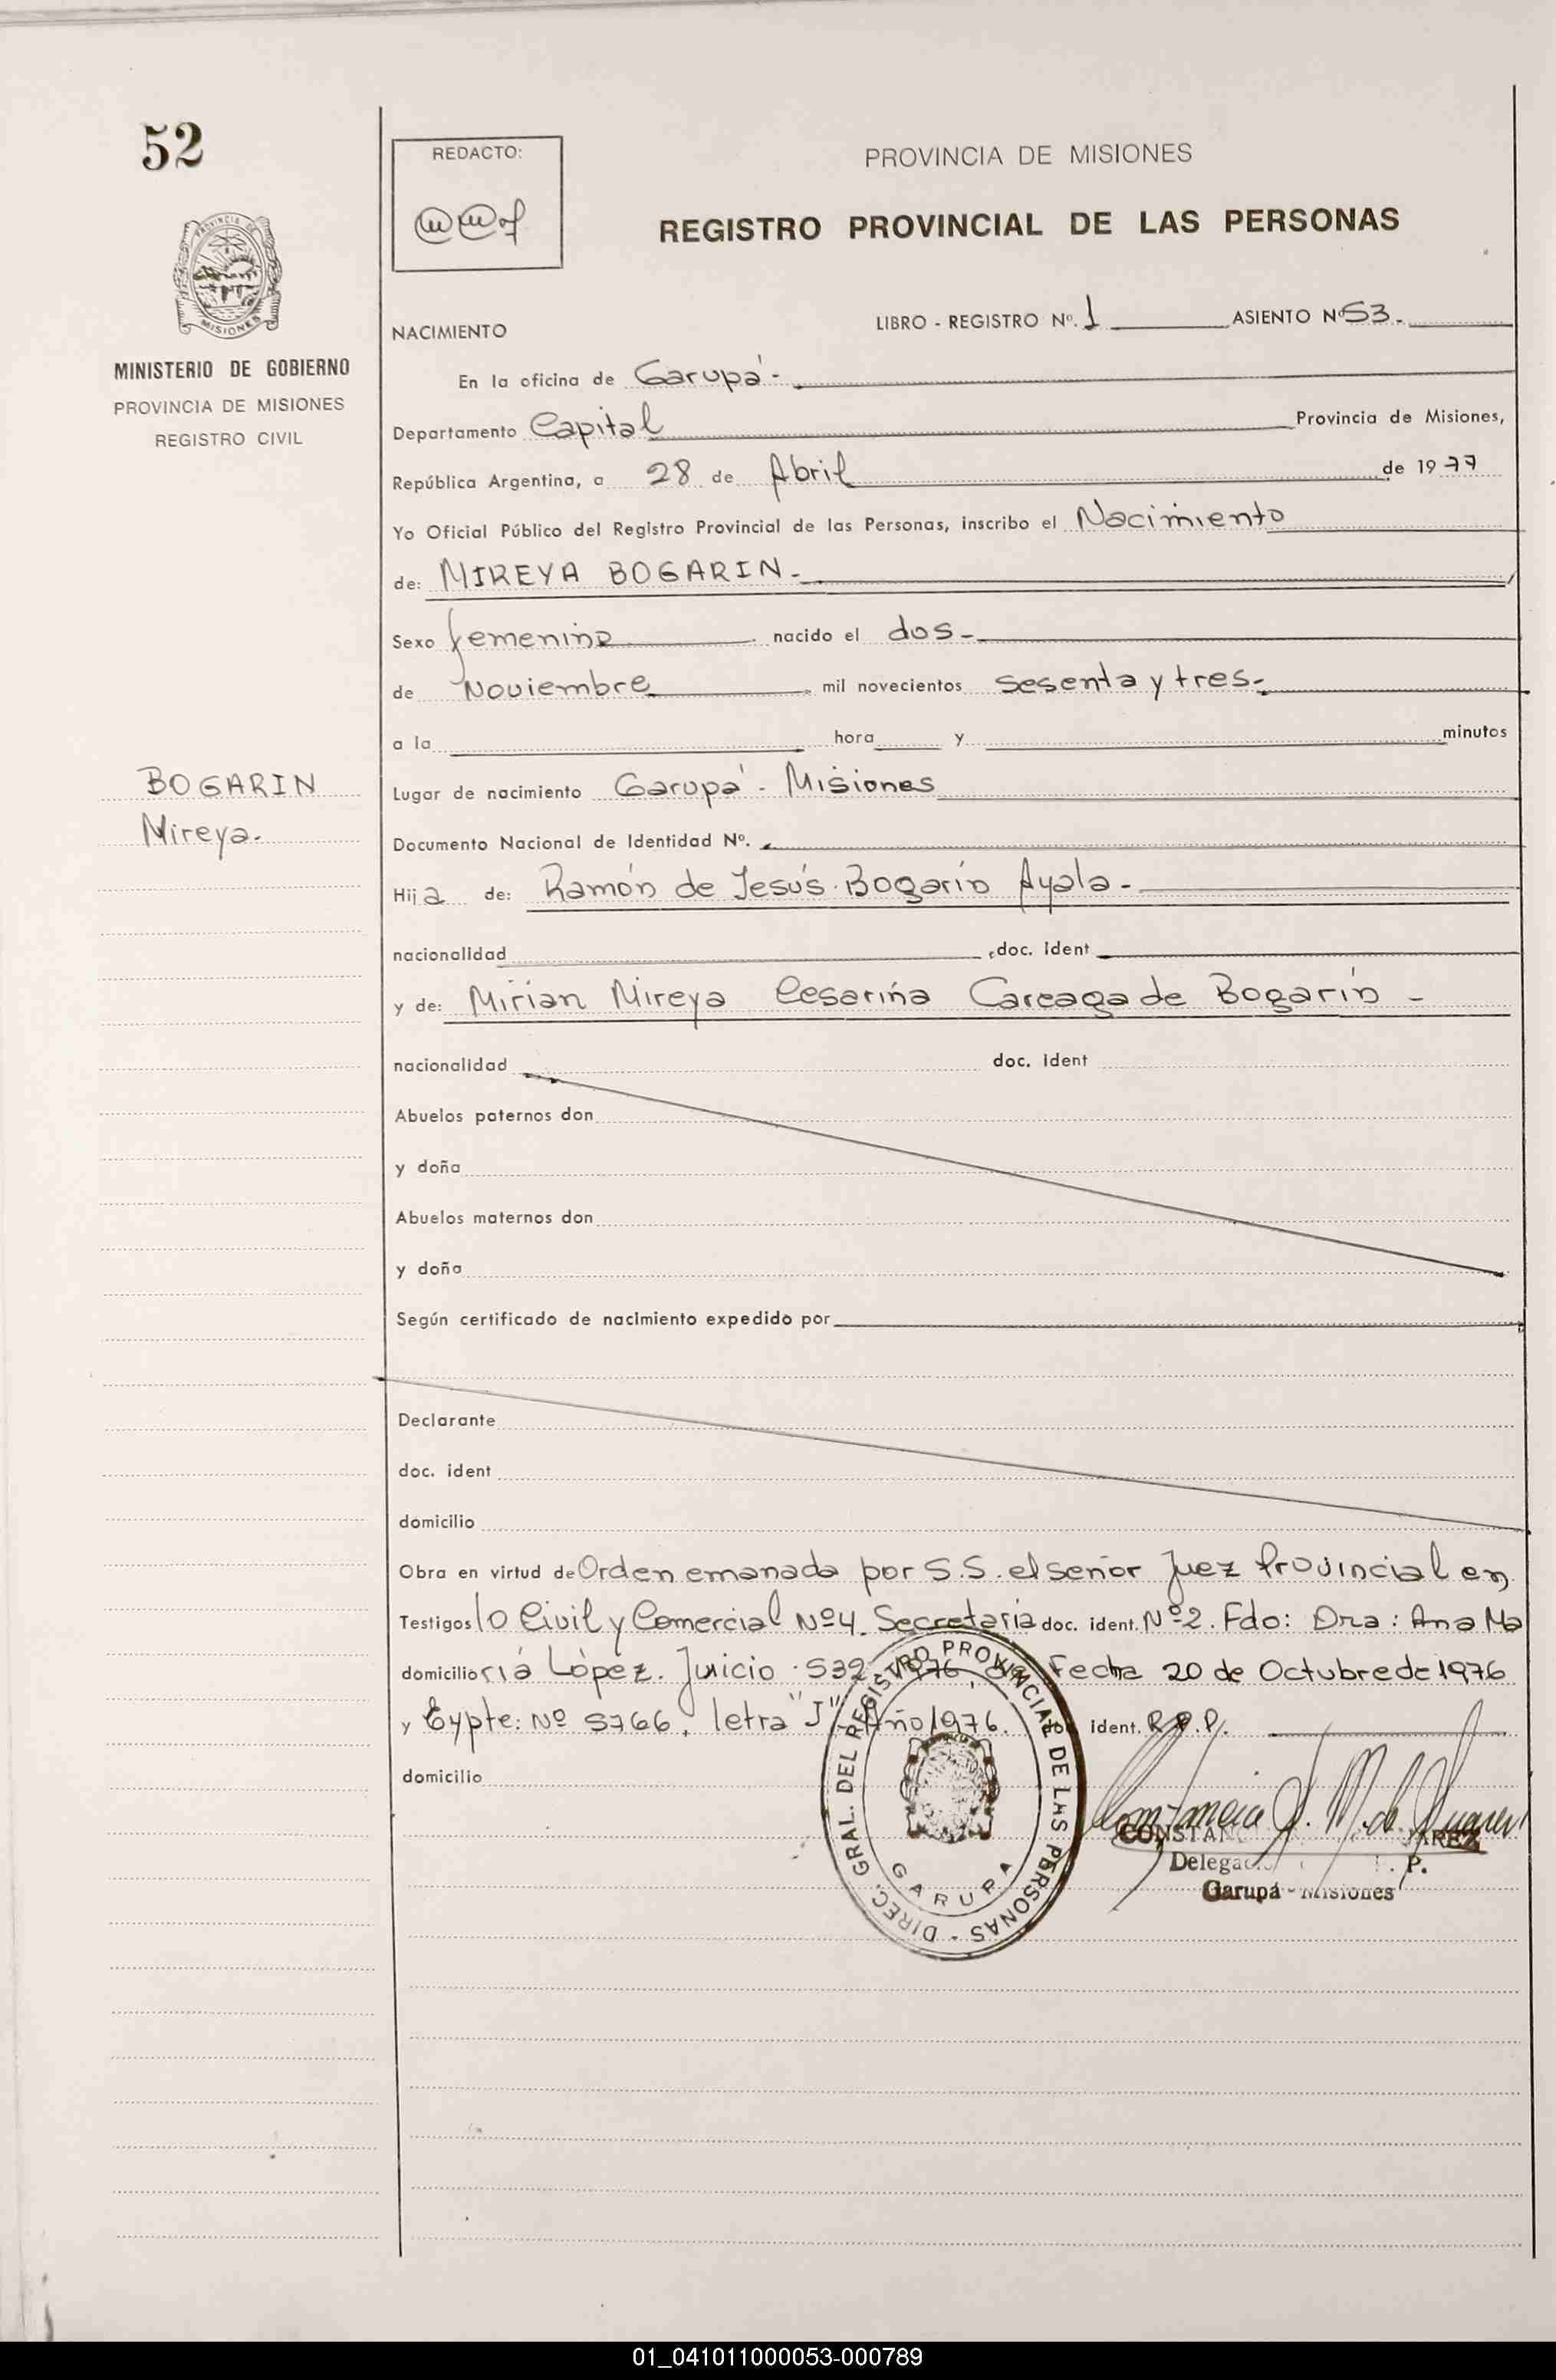 52
REDACTO:
PROVINCIA DE MISIONES
REGISTRO PROVINCIAL DE LAS PERSONAS
PROVINCIA
MISIONES
MINISTERIO DE GOBIERNO
PROVINCIA DE MISIONES
REGISTRO CIVIL
NACIMIENTO
LIBRO - REGISTRO Nº. 1 ASIENTO Nº 53.-
En la oficina de Garupá.-
Departamento Capital Provincia de Misiones,
República Argentina, a 28 de Abril de 1977
Yo Oficial Público del Registro Provincial de las Personas, inscribo el Nacimiento
de: MIREYA BOGARIN.-
Sexo femenino nacido el dos.-
de Noviembre mil novecientos sesenta y tres.-
a la hora y minutos
BOGARIN
Mireya.
Lugar de nacimiento Garupá - Misiones
Documento Nacional de Identidad Nº.
Hija de: Ramón de Jesús Bogarín Ayala.-
nacionalidad doc. ident
y de: Mirian Mireya Cesarina Careaga de Bogarín -
nacionalidad doc. ident
Abuelos paternos don
y doña
Abuelos maternos don
y doña
Según certificado de nacimiento expedido por
Declarante
doc. ident
domicilio
Obra en virtud de Orden emanada por S.S. el señor Juez Provincial en
Testigos lo Civil y Comercial Nº 4 Secretaría doc. ident. Nº 2. Fdo: Dra: Ana Ma
domicilio ría López. Juicio 532 976, Fecha 20 de Octubre de 1976
y Expte: Nº 5766, letra "J" Año 1976. ident. R.P.P.
domicilio
DIREC. GRAL. DEL REGISTRO PROVINCIAL DE LAS PERSONAS - GARUPA
CONSTAN AREZ
P.
Garupá - Misiones
01_041011000053-000789